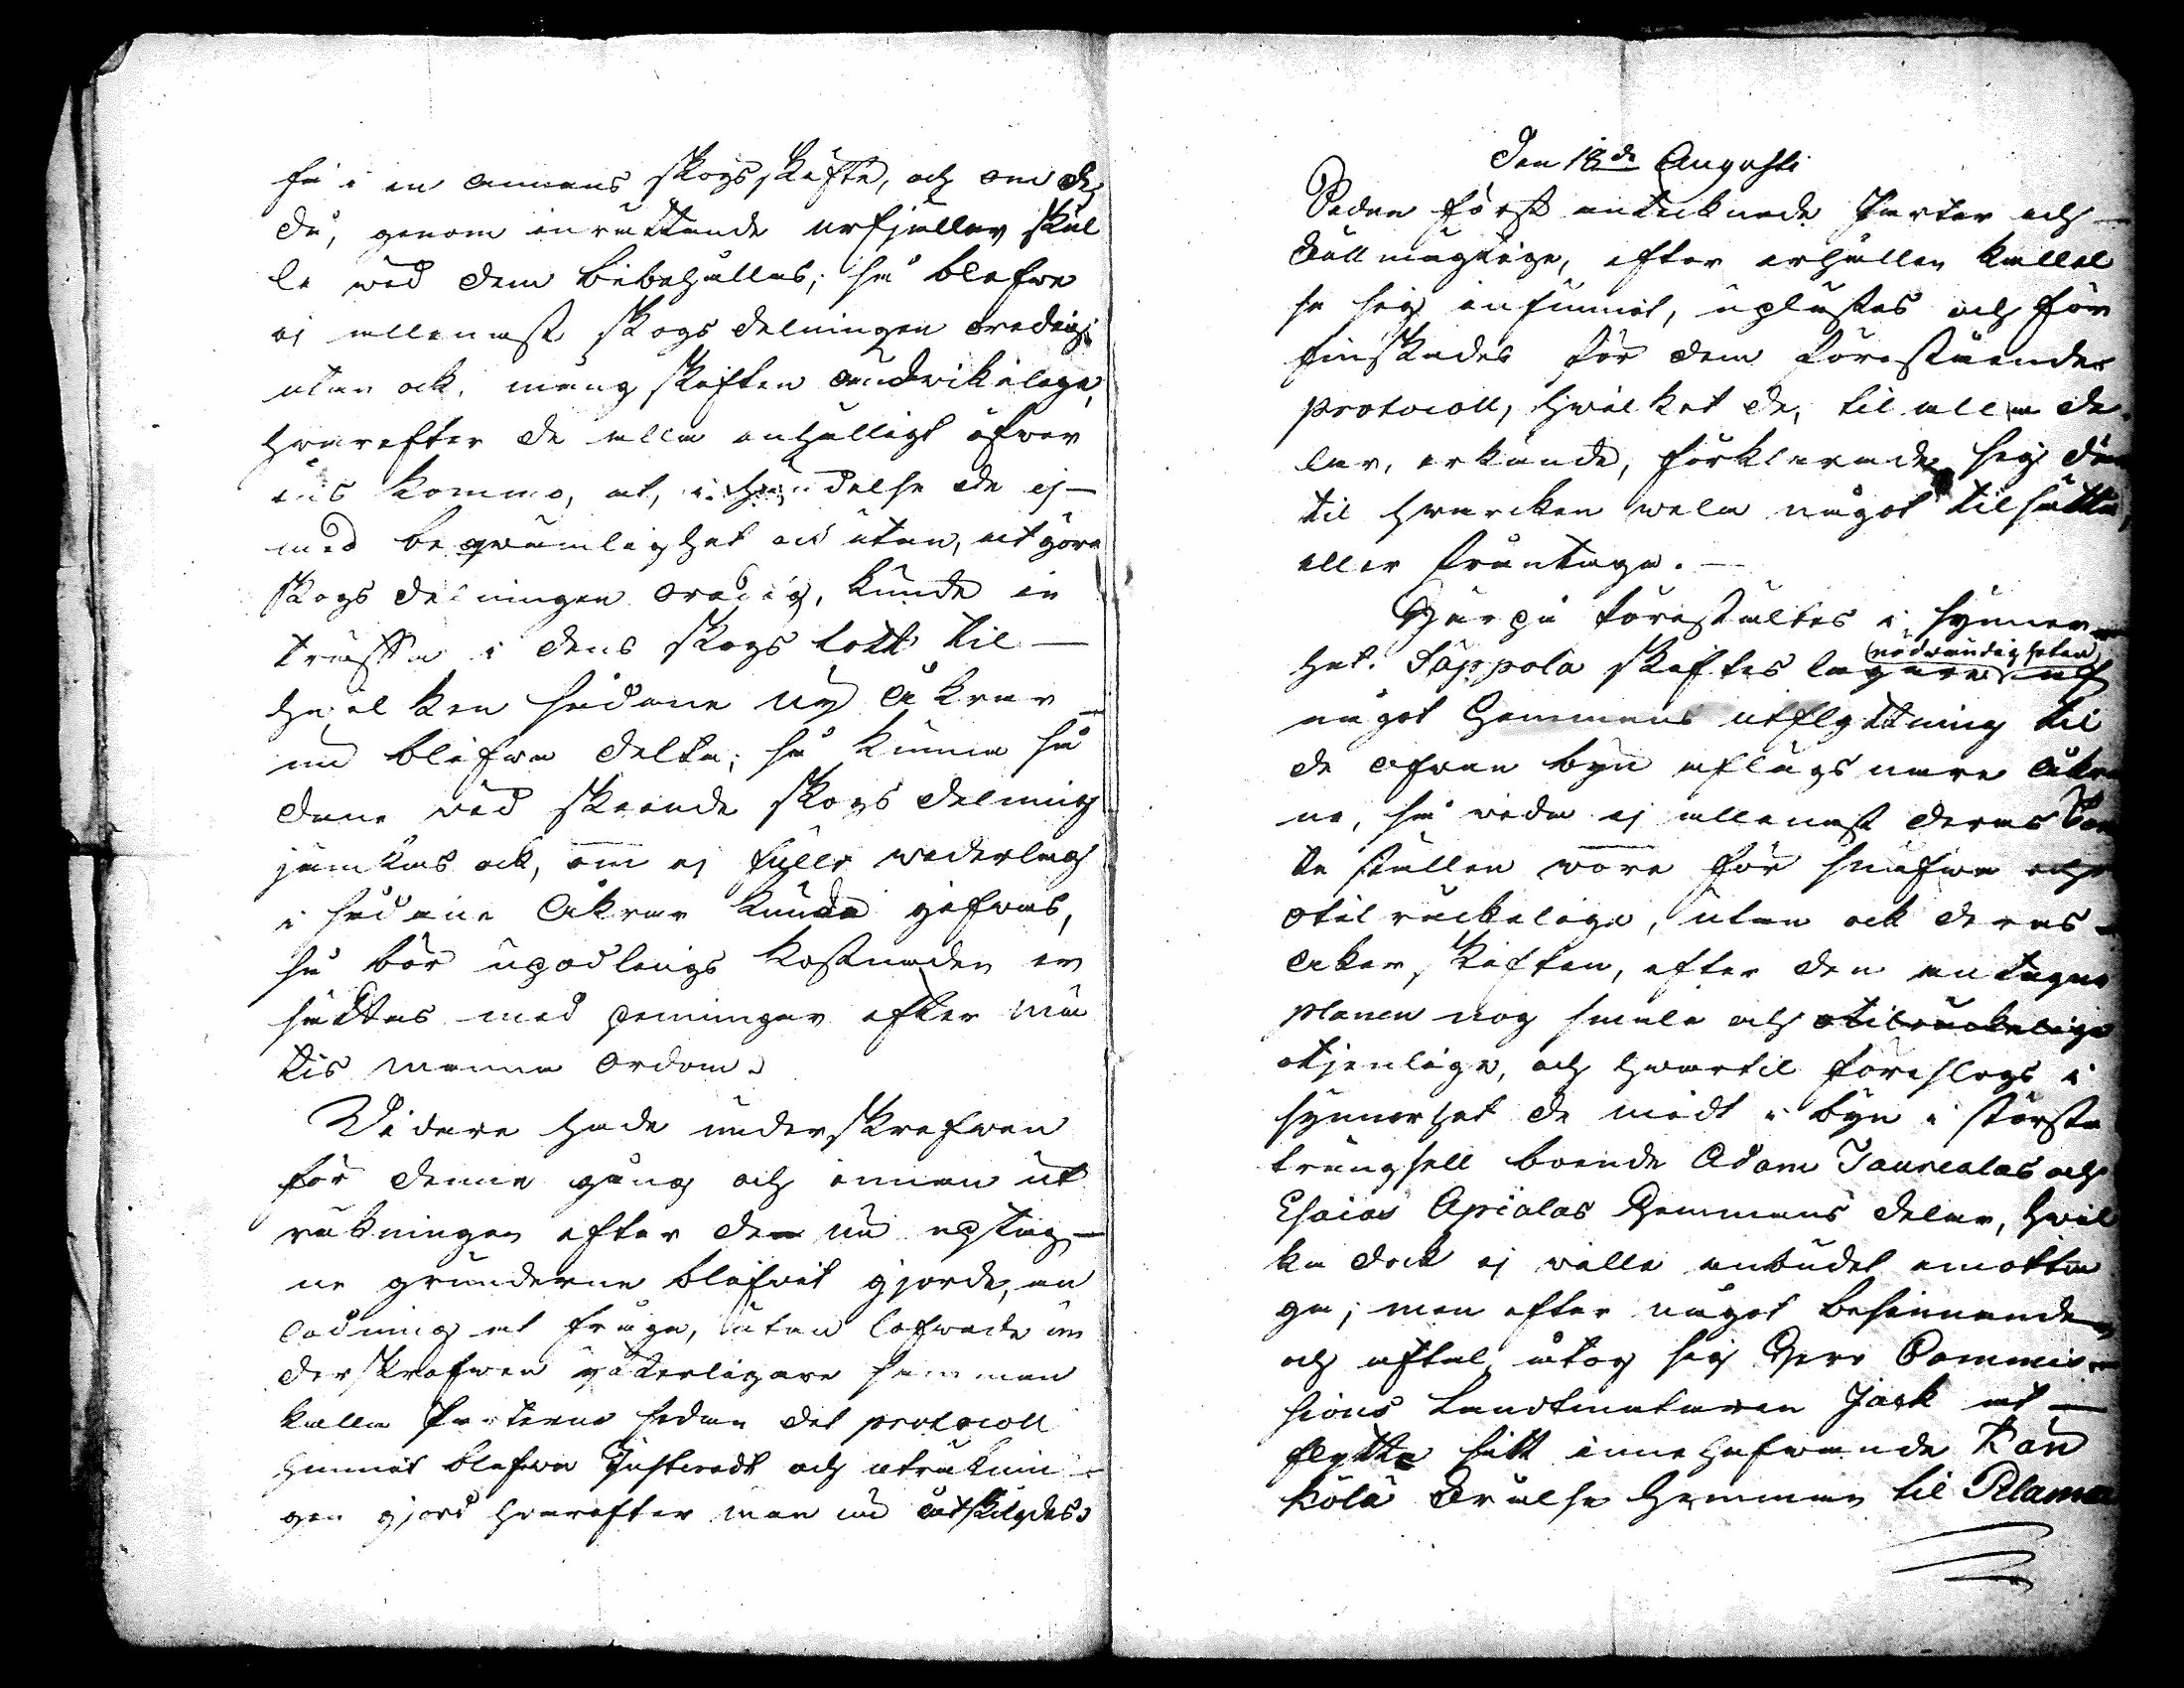 få i en annans skogsskifte, och om de
då, genom inrättande urfjellar skul
le wid dem bibehållas; så blefwe
ej allenast skogs delningen oredig,
utan ock mång skiften oundwikelige,
hwarefter de alla enhälligt öfwer
ens kommo, at, i händelse de ej
med beqwämlighet och utan, at göra
skogs delningen oredig, kunde in
träffa i dens skogs lott til
hwilken sådane ny åkrar
nu blifwa delte; så kunna så
dane wid skeende skogs delning
jämkas ock, om ej fullt wederlag
i sådane åkrar kunde gifwas,
så bör upodlings kostnaden er
sättas med penningar efter mä
tis manna ordom.
Widare hade underskrefwen
för denna gång och innan ut
räkningen efter de nu uptag
ne grunderne blifwit gjorde, an
ledning at fråga, utan lofwade un
derskrefwen ytterligare samman
kalla Parterne sedan det protocoll
hunnit blifwa Justeradt och uträknin
gen gjord hwarefter man nu åtskilgdes.
Den 18de Augusti
Sedan först antecknade Parter och
Fullmägtige, efter erhållen kallel
se sig infunnit, uplästes och för
finskades för dem förestående
Protocoll, hwilket de, til alla de
lar, erkände, förklarade sig där
til hwarcken wela något tilsätta,
eller fråntaga.
Härpå föreställtes i synner
het Sappola skiftes lagare nödwändigheten af
något Hemmans utflyttning til
de ofwan byn aflägsnare åkra
ne, så wida ej allenast deras Tom
te ställen wore för snäfwa och
otilräckelige, utan ock deras
åker skiften, efter den antagne
planen nog smala och otilräckelige
otjenlige, och hwartil föreslogs i
synnerhet de midt i byn i största
trångsell boende Adam Jaurealas och
Esaias Apialas Hemmans delar, hwil
ka dock ej wille anbudet emotta
ga; men efter något besinnande
och aftal, åtog sig Herr Commis
sions Landtmätaren Jack at
flytta sitt innehafwande Kau
kola Frälse hemman til Pelama